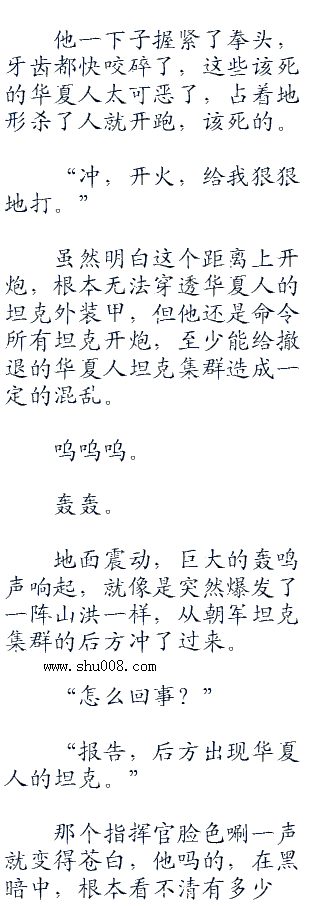 他一下子握紧了拳头，
牙齿都快咬碎了，这些该死
的华夏人太可恶了，占着地
形杀了人就开跑，该死的。
“冲，开火，给我狠狠
地打。”
虽然明白这个距离上开
炮，根本无法穿透华夏人的
坦克外装甲，但他还是命令
所有坦克开炮，至少能给撤
退的华夏人坦克集群造成一
定的混乱。
呜呜呜。
轰轰。
地面震动，巨大的轰鸣
声响起，就像是突然爆发了
一阵山洪一样，从朝军坦克
集群的后方冲了过来。
www.shu008.com
“怎么回事？”
“报告，后方出现华夏
人的坦克。”
那个指挥官脸色唰一声
就变得苍白，他吗的，在黑
暗中，根本看不清有多少